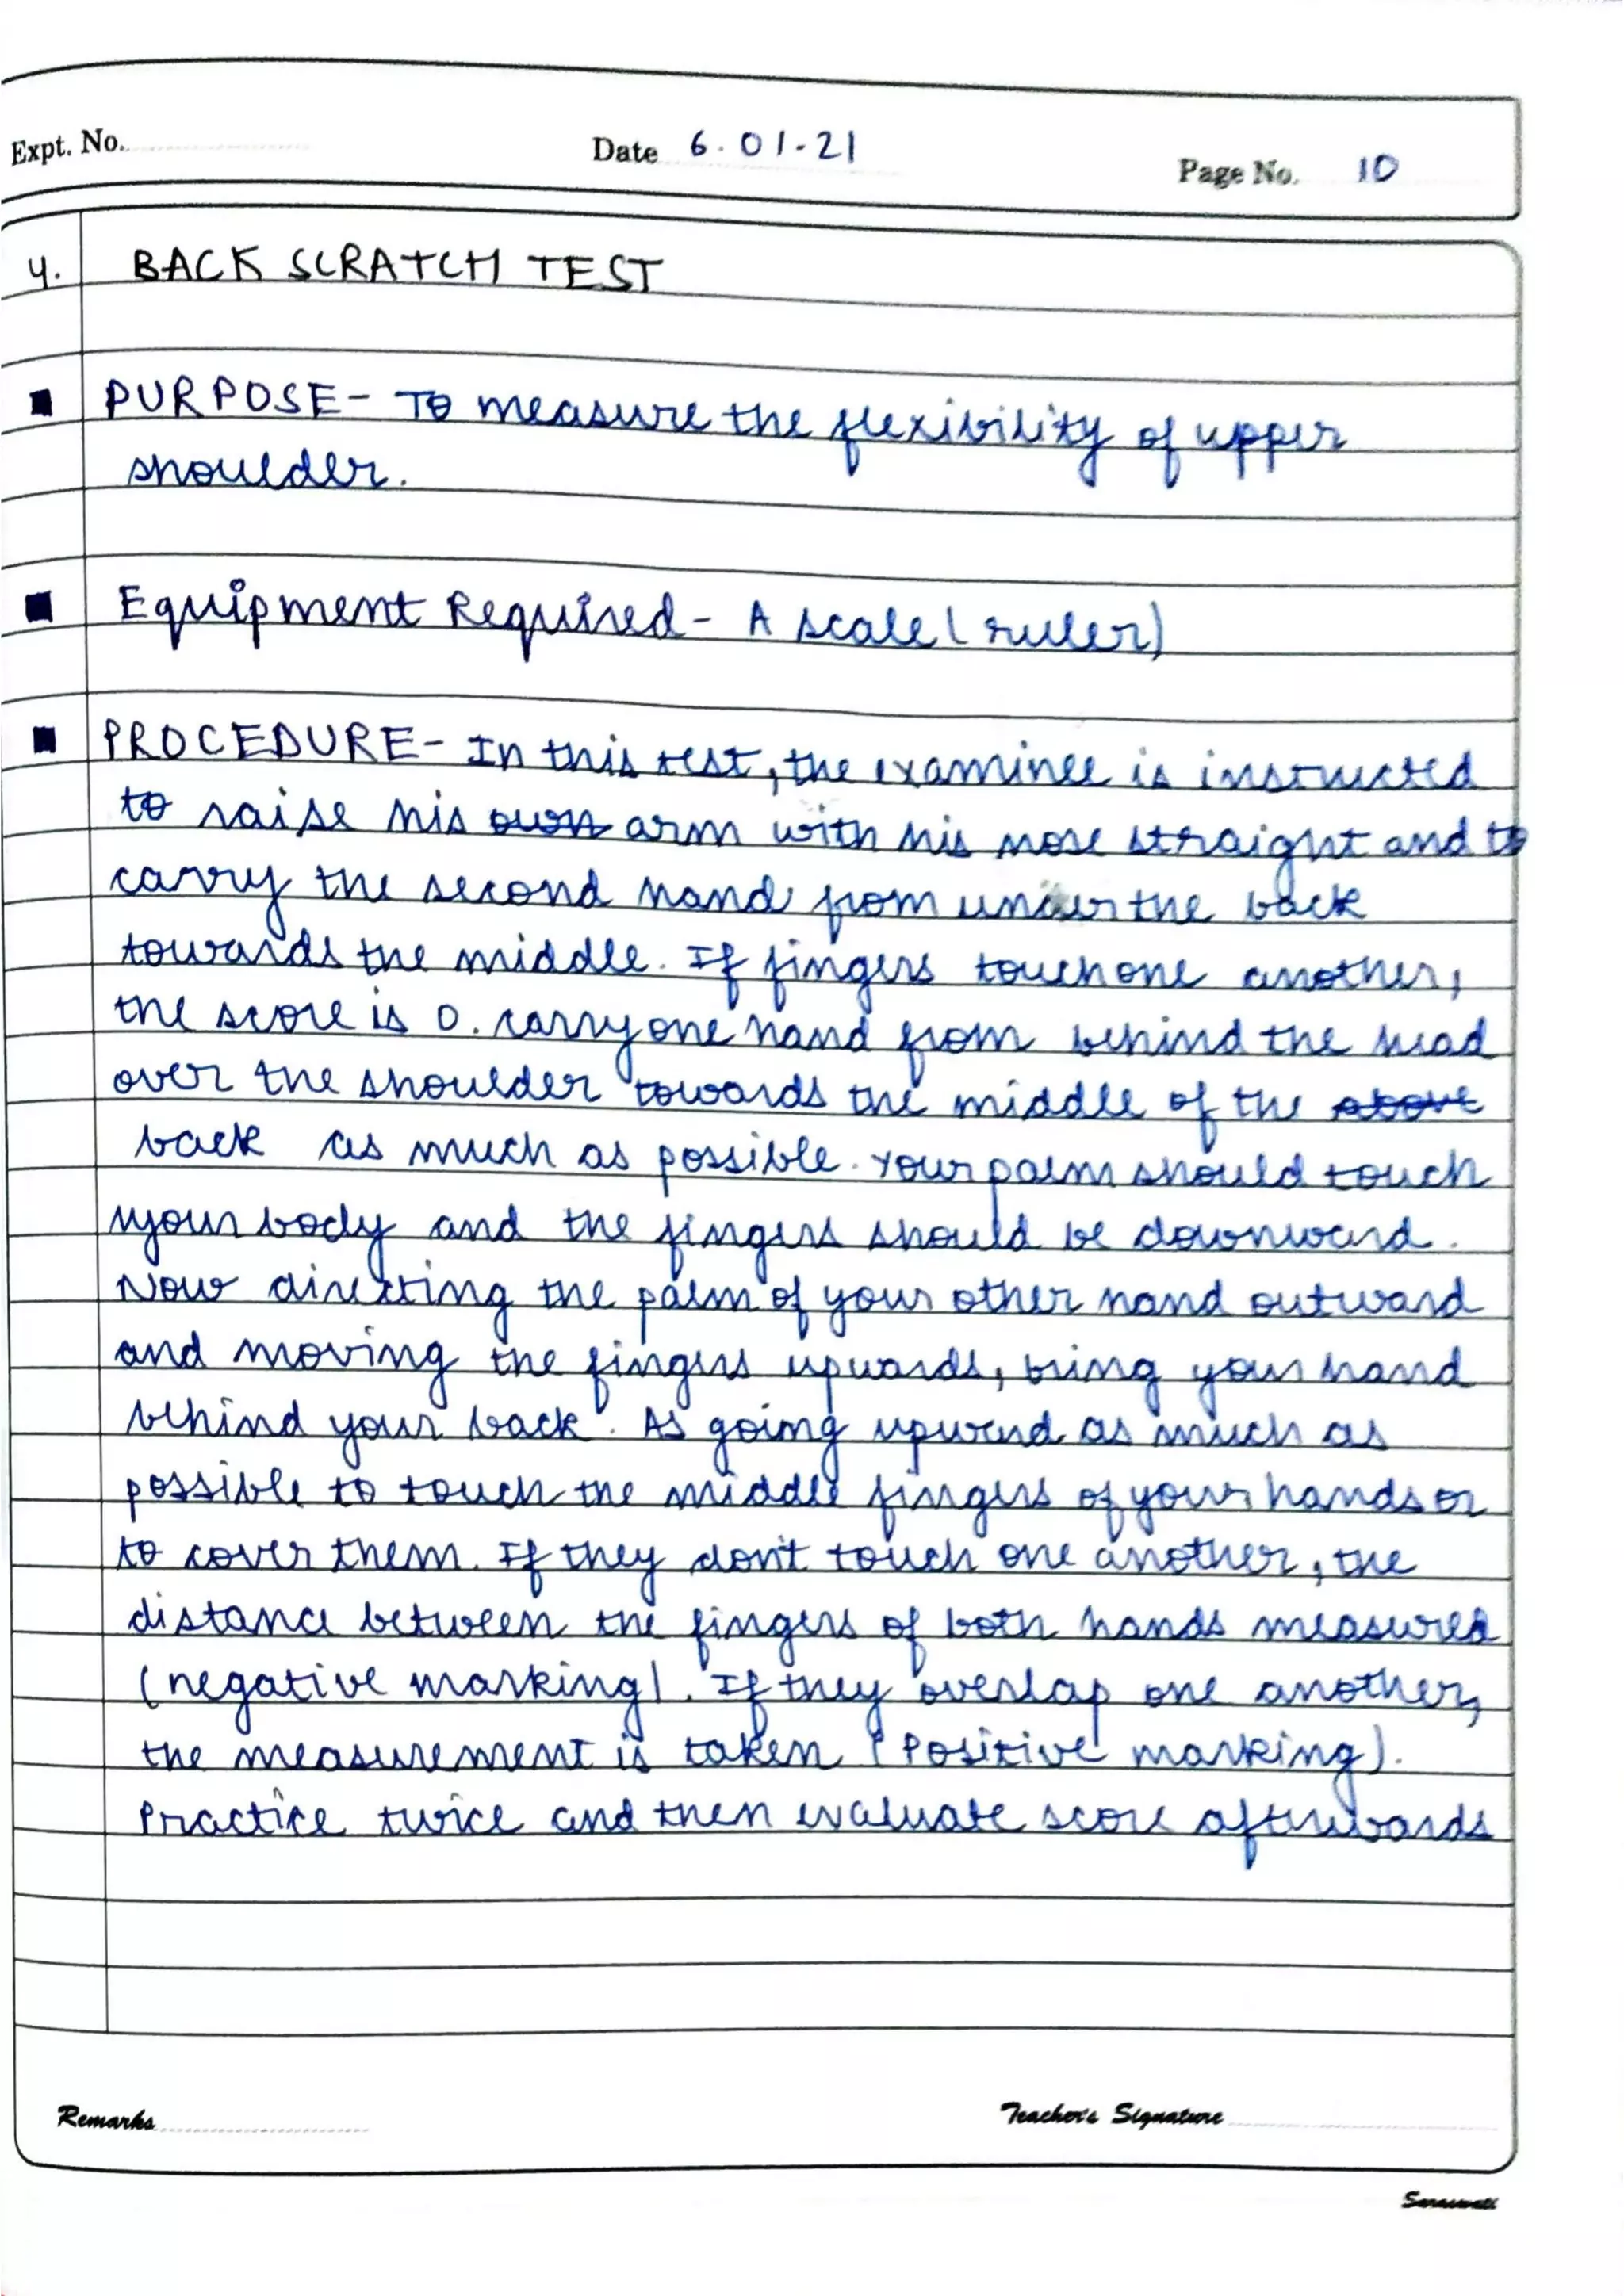 Expt. No.
Date 6.01-21
Page No. 10
4. BACK SCRATCH TEST
PURPOSE- To measure the flexibility of upper
shoulder.
Equipment Required- A scale (ruler)
PROCEDURE- In this test, the examinee is instructed
to raise his own arm with his nose straight and to
carry the second hand from under the back
towards the middle. If fingers touch one another,
the score is 0. carry one hand from behind the head
over the shoulder towards the middle of the above
back as much as possible. Your palm should touch
your body and the fingers should be downward.
Now directing the palm of your other hand outward
and moving the fingers upwards, bring your hand
behind your back. As going upward as much as
possible to touch the middle fingers of your hands or
to cover them. If they don't touch one another, the
distance between the fingers of both hands measured
(negative marking). If they overlap one another,
the measurement is taken (Positive marking).
Practice twice and then evaluate score afterwards
Remarks
Teacher's Signature
Saraswati